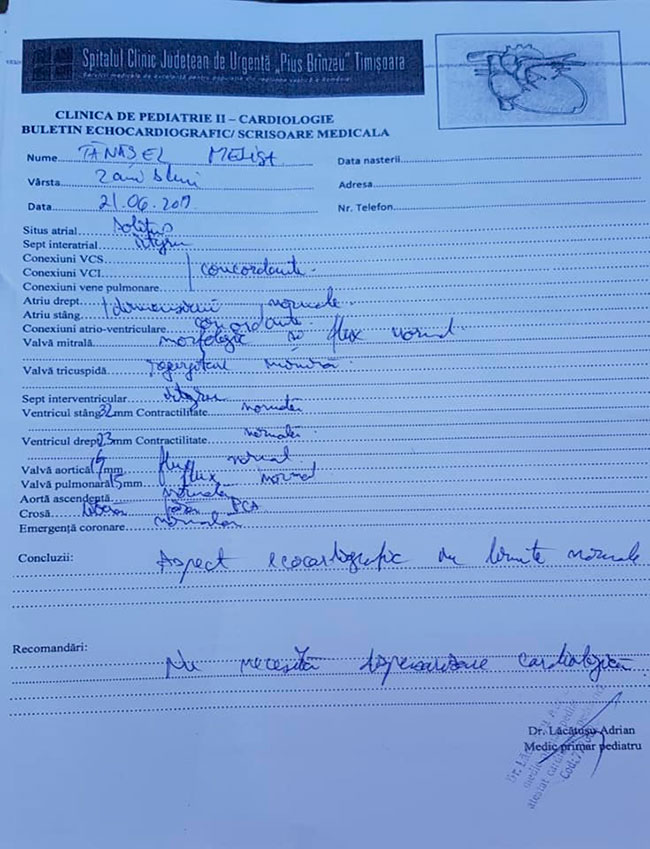 Spitalul Clinic Judeţean de Urgenţă „Pius Brînzeu” Timişoara
CLINICA DE PEDIATRIE II – CARDIOLOGIE
BULETIN ECHOCARDIOGRAFIC/ SCRISOARE MEDICALA
Nume TĂNASEL MELISA Data nasterii
Vârsta 2 ani Adresa
Data 21.06. Nr. Telefon
Situs atrial solitus
Sept interatrial integru
Conexiuni VCS
Conexiuni VCI concordante
Conexiuni vene pulmonare
Atriu drept dimensiuni normale
Atriu stâng
Conexiuni atrio-ventriculare concordante
Valvă mitrală morfologic si flux normal
Valvă tricuspidă regurgitare minimă
Sept interventricular integru
Ventricul stâng 32 mm Contractilitate normală
Ventricul drept 23 mm Contractilitate normală
Valvă aortică mm flux normal
Valvă pulmonară 15 mm flux normal
Aortă ascendentă normală
Crosă PCA
Emergenţă coronare normală
Concluzii: Aspect ecocardiografic in limite normale
Recomandări: Nu necesită dispensarizare cardiologică
Dr. Lăcătuşu Adrian
Medic primar pediatru